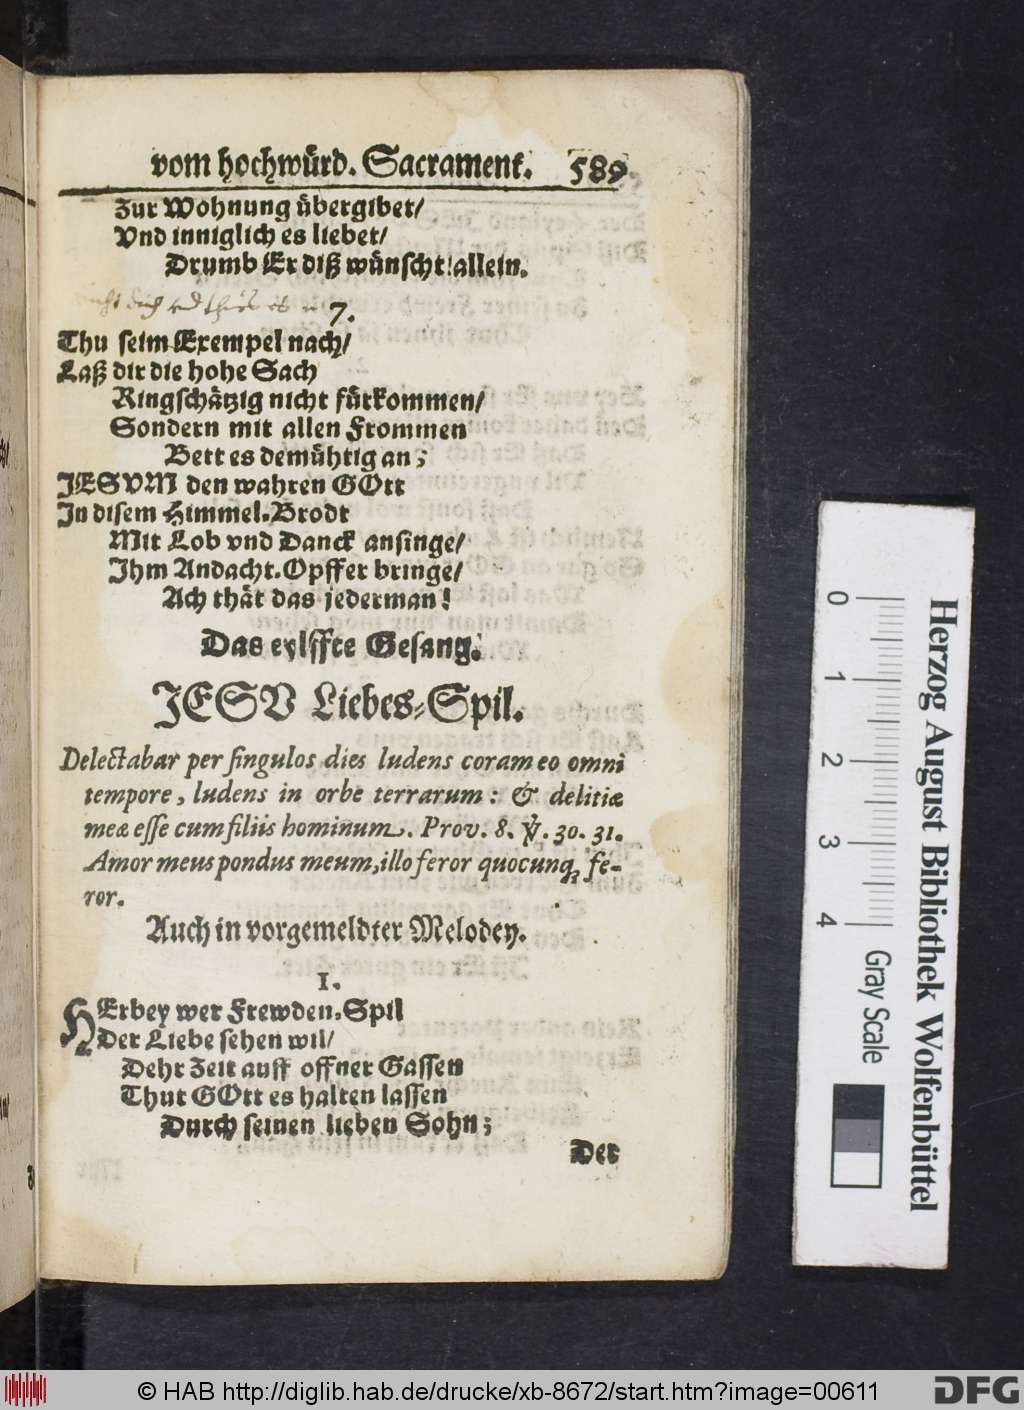 vom hochwürd. Sacrament. 589
Zur Wohnung übergibet/
Vnd inniglich es liebet/
Drumb Er diß wünscht allein.
7.
Thu seim Exempel nach/
Laß dir die hohe Sach
Ringschätzig nicht fürkommen/
Sondern mit allen Frommen
Bett es demühtig an;
JESVM den wahren GOtt
In disem Himmel-Brodt
Mit Lob vnd Danck ansinge/
Ihm Andacht-Opffer bringe/
Ach thät das jederman!
Das eylffte Gesang.
JESV Liebes-Spil.
Delectabar per singulos dies ludens coram eo omni
tempore, ludens in orbe terrarum: & delitiæ
meæ esse cum filiis hominum. Prov. 8. ℣. 30. 31.
Amor meus pondus meum, illo feror quocunq; fe-
ror.
Auch in vorgemeldter Melodey.
1.
HErbey wer Frewden-Spil
Der Liebe sehen wil/
Dehr Zeit auff offner Gassen
Thut GOtt es halten lassen
Durch seinen lieben Sohn;
Der
0
1
2
3
4
Gray Scale
Herzog August Bibliothek Wolfenbüttel
© HAB http://diglib.hab.de/drucke/xb-8672/start.htm?image=00611
DFG